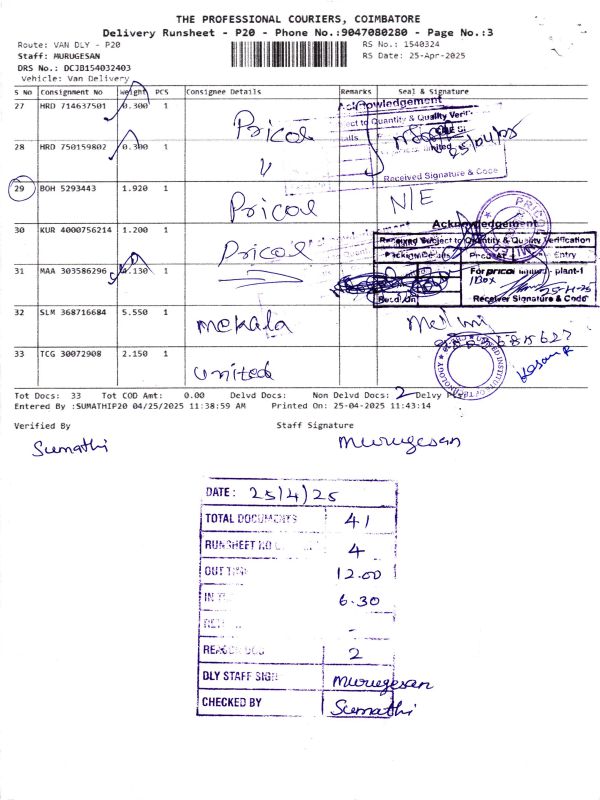 THE PROFESSIONAL COURIERS, COIMBATORE
Delivery Runsheet - P20 - Phone No.:9047080280 - Page No.:3
Route: VAN DLY - P20
RS No.: 1540324
Staff: MURUGESAN
RS Date: 25-Apr-2025
DRS No.: DCJB154032403
Vehicle: Van Delivery
S No Consignment No Weight PCS Consignee Details Remarks Seal & Signature
27 HRD 714637501 0.300 1 Pricol
Acknowledgement
Quantity & Quality
25/04/25
28 HRD 750159802 0.300 1 "
Received Signature & Code
29 BOH 5293443 1.920 1 Pricol N/E
30 KUR 4000756214 1.200 1 Pricol
Acknowledgement
Received Subject to Quantity & Quality Verification
Packing Details Entry
31 MAA 303586296 4.130 1
For pricol limited - plant-1
1 Box
25-4-25
Receiver Signature & Code
32 SLM 368716684 5.550 1 mekala
33 TCG 30072908 2.150 1 united
UNITED INSTITUTE OF TECHNOLOGY
Tot Docs: 33 Tot COD Amt: 0.00 Delvd Docs: Non Delvd Docs: 2 Delvy
Entered By :SUMATHIP20 04/25/2025 11:38:59 AM Printed On: 25-04-2025 11:43:14
Verified By Staff Signature
Sumathi Murugesan
DATE: 25/4/25
TOTAL DOCUMENTS 41
RUNSHEET NO 4
OUT TIME 12.00
IN 6.30
-
2
DLY STAFF SIGN Murugesan
CHECKED BY Sumathi